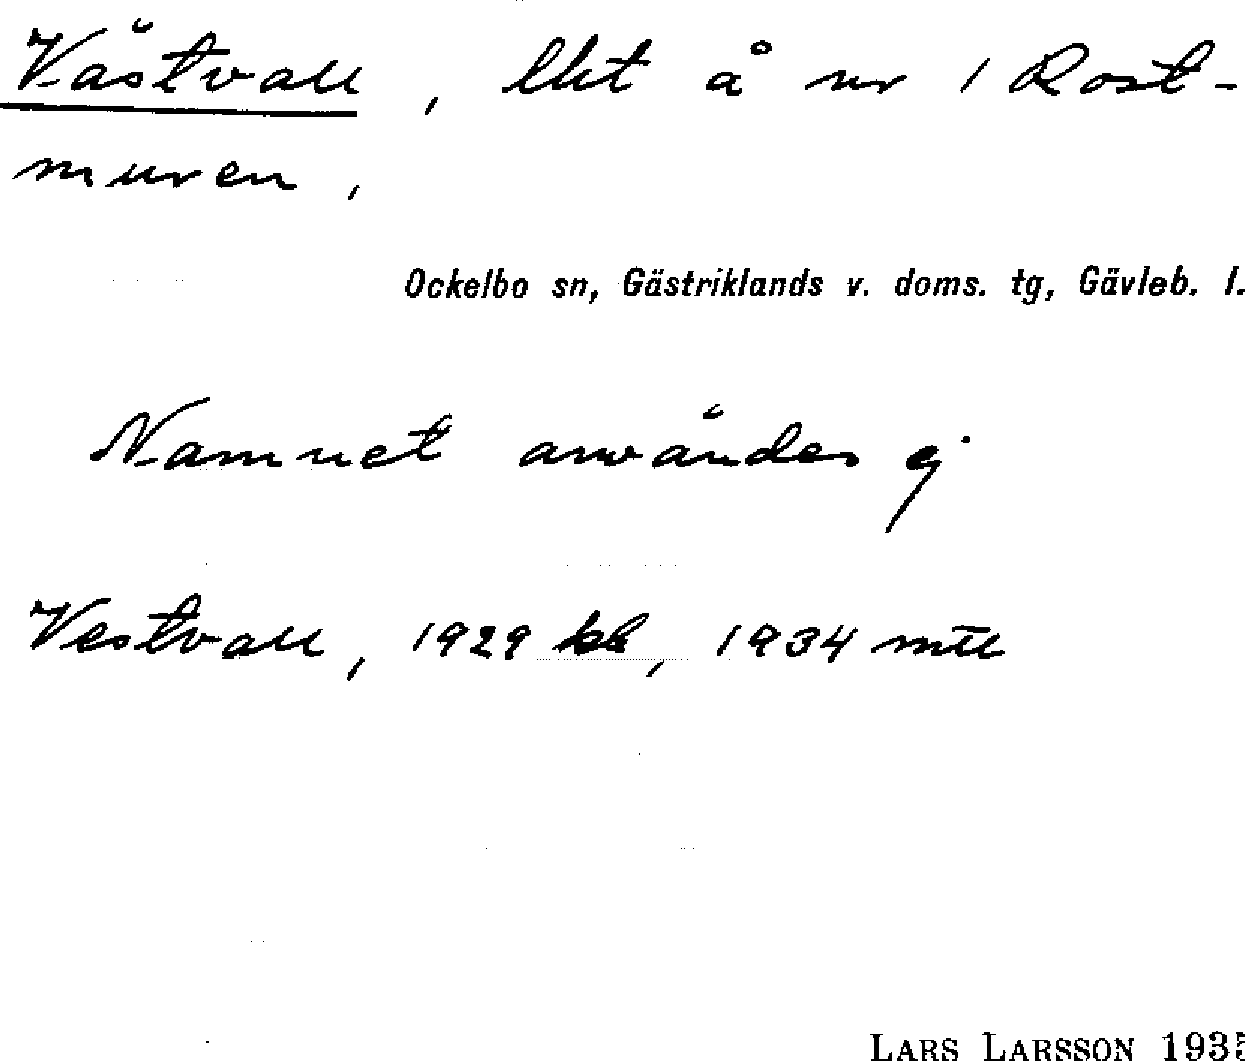 Västvall, lht å nr 1 Rost-
muren,
Ockelbo sn, Gästriklands v. doms. tg, Gävleb. l.
Namnet användes ej
Vestvall, 1929 kb, 1934 mtl
LARS LARSSON 1935